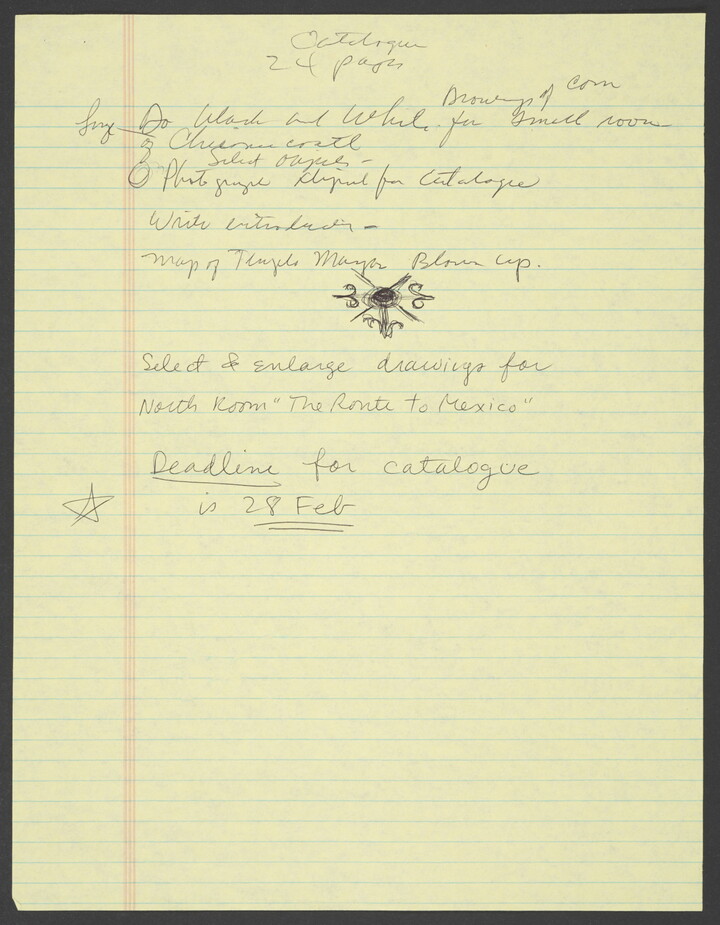 Catalogue
24 pages
Drawings of Corn
Do Black and White for Small room
of Chicomecoatl
Select objects -
Photograph for Catalogue
Write introduction -
Map of Templo Mayor Blown up.
Select & enlarge drawings for
North Room "The Route to Mexico"
Deadline for catalogue
is 28 Feb